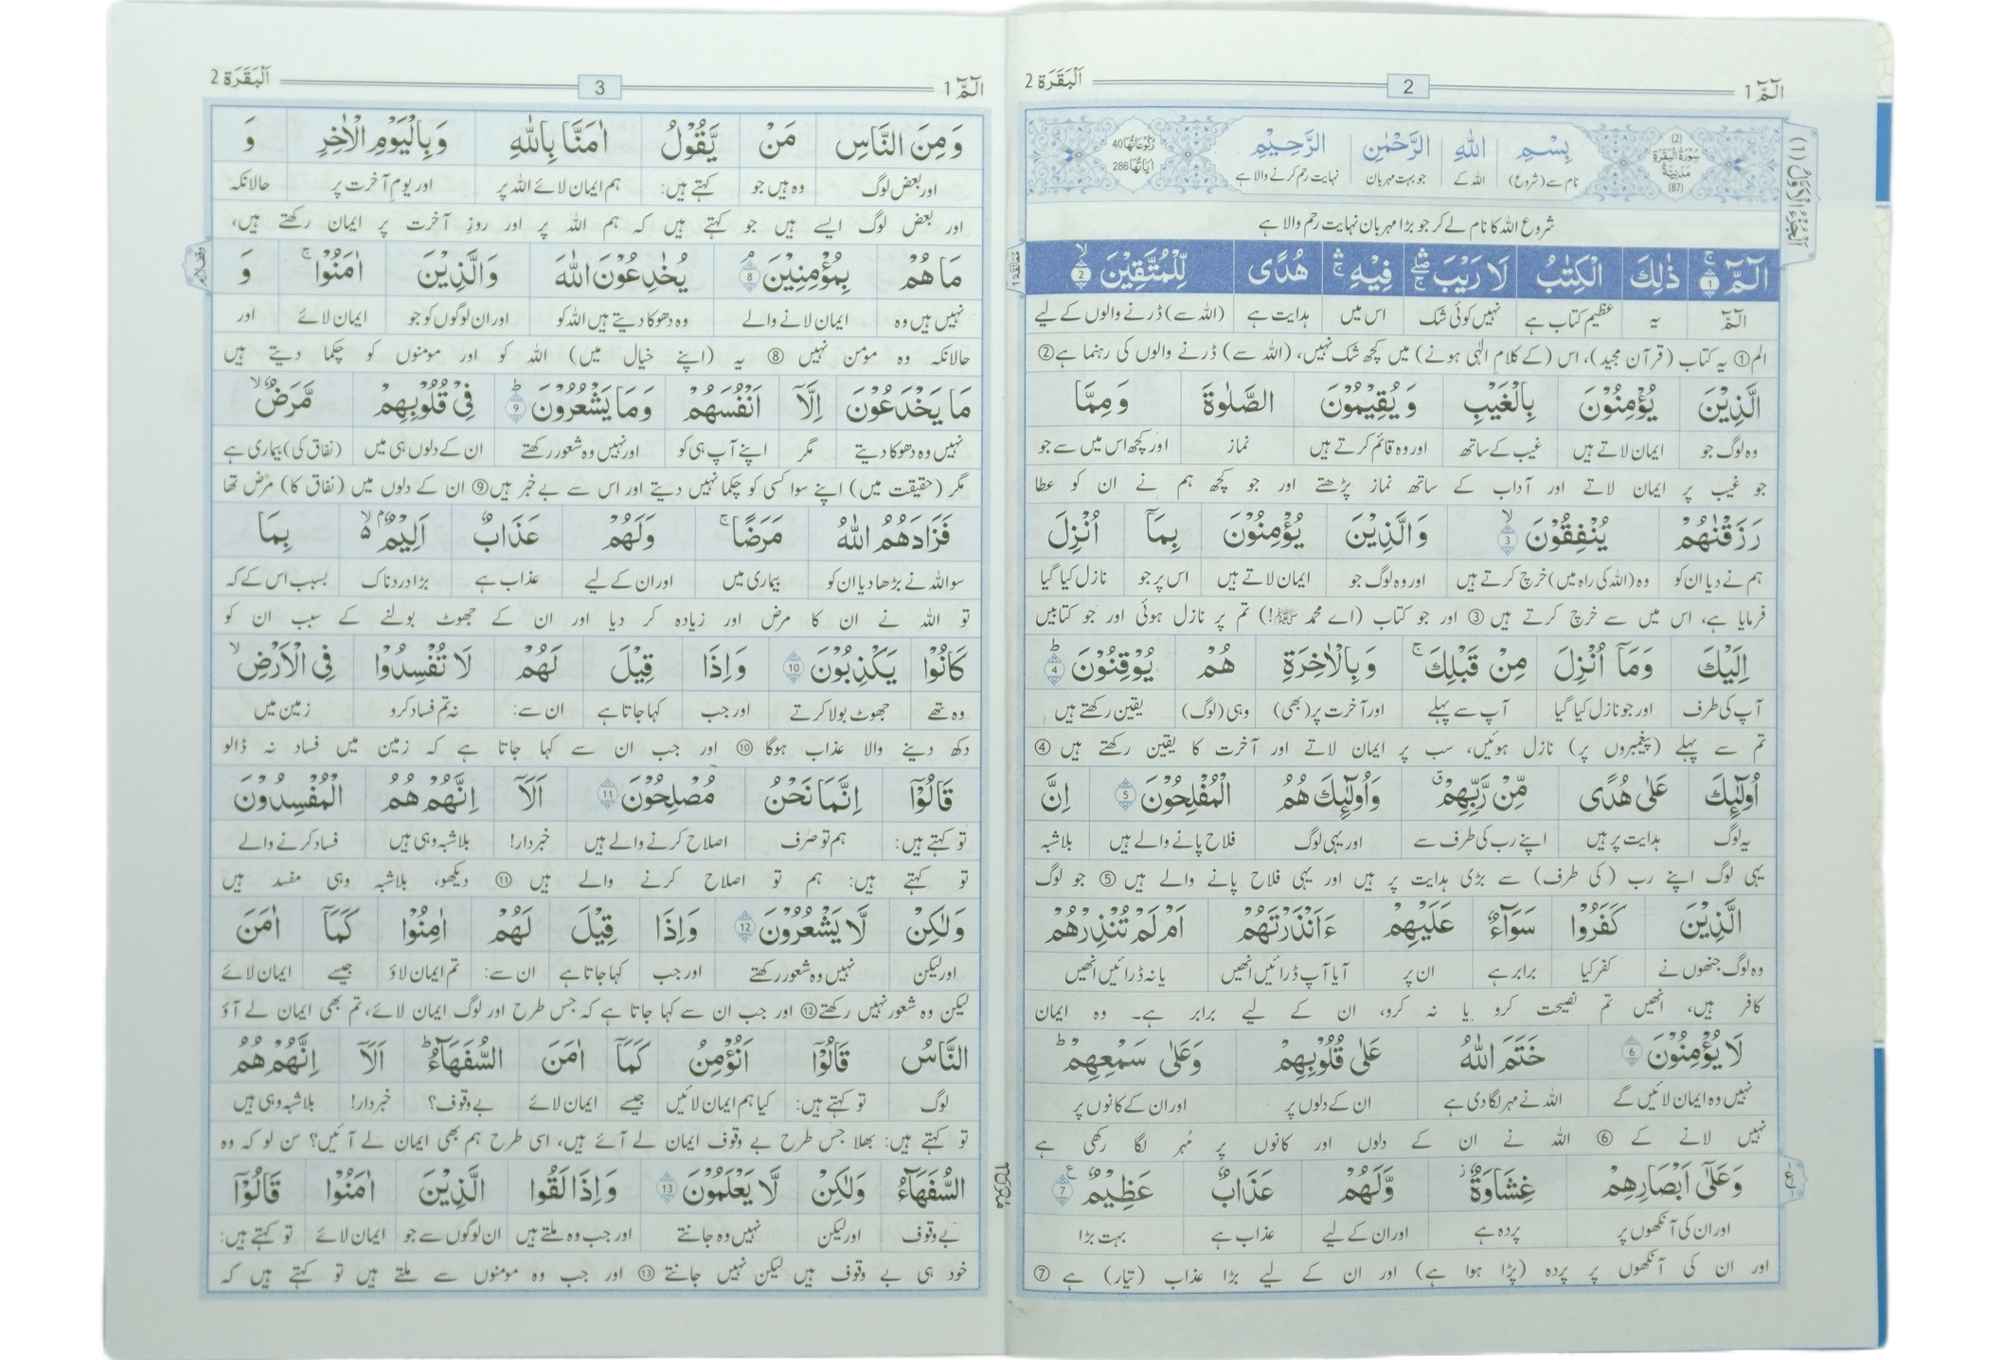 الٓمّٓ 1
2
اَلْبَقَرَة 2
اَلْجُزْءُ الْاَوَّلُ (1)
(2) سُوْرَةُ الْبَقَرَةِ مَدَنِيَّةٌ (87)
بِسْمِ اللّٰهِ الرَّحْمٰنِ الرَّحِيْمِ
رُكُوْعَاتُهَا 40
اٰيَاتُهَا 286
نام سے (شروع) اللہ کے جو بہت مہربان نہایت رحم کرنے والا ہے
شروع اللہ کا نام لے کر جو بڑا مہربان نہایت رحم والا ہے
الٓمّٓ ۚ 1 ذٰلِكَ الْكِتٰبُ لَا رَيْبَ ۛۖۚ فِيْهِ ۛۚ هُدًى لِّلْمُتَّقِيْنَ ۙ 2
الٓمّٓ یہ عظیم کتاب ہے نہیں کوئی شک اس میں ہدایت ہے (اللہ سے) ڈرنے والوں کے لیے
الم① یہ کتاب (قرآن مجید)، اس (کے کلام الٰہی ہونے) میں کچھ شک نہیں، (اللہ سے) ڈرنے والوں کی رہنما ہے②
الَّذِيْنَ يُؤْمِنُوْنَ بِالْغَيْبِ وَيُقِيْمُوْنَ الصَّلٰوةَ وَمِمَّا
وہ لوگ جو ایمان لاتے ہیں غیب کے ساتھ اور وہ قائم کرتے ہیں نماز اور کچھ اس میں سے جو
جو غیب پر ایمان لاتے اور آداب کے ساتھ نماز پڑھتے اور جو کچھ ہم نے ان کو عطا
رَزَقْنٰهُمْ يُنْفِقُوْنَ ۙ 3 وَالَّذِيْنَ يُؤْمِنُوْنَ بِمَآ اُنْزِلَ
ہم نے دیا ان کو وہ (اللہ کی راہ میں) خرچ کرتے ہیں اور وہ لوگ جو ایمان لاتے ہیں اس پر جو نازل کیا گیا
فرمایا ہے، اس میں سے خرچ کرتے ہیں③ اور جو کتاب (اے محمد ﷺ!) تم پر نازل ہوئی اور جو کتابیں
اِلَيْكَ وَمَآ اُنْزِلَ مِنْ قَبْلِكَ ۚ وَبِالْاٰخِرَةِ هُمْ يُوْقِنُوْنَ ؕ 4
آپ کی طرف اور جو نازل کیا گیا آپ سے پہلے اور آخرت پر (بھی) وہی (لوگ) یقین رکھتے ہیں
تم سے پہلے (پیغمبروں پر) نازل ہوئیں، سب پر ایمان لاتے اور آخرت کا یقین رکھتے ہیں④
اُولٰٓئِكَ عَلٰى هُدًى مِّنْ رَّبِّهِمْ ۗ وَاُولٰٓئِكَ هُمُ الْمُفْلِحُوْنَ 5 اِنَّ
یہ لوگ ہدایت پر ہیں اپنے رب کی طرف سے اور یہی لوگ فلاح پانے والے ہیں بلاشبہ
یہی لوگ اپنے رب (کی طرف) سے بڑی ہدایت پر ہیں اور یہی فلاح پانے والے ہیں⑤ جو لوگ
الَّذِيْنَ كَفَرُوْا سَوَآءٌ عَلَيْهِمْ ءَاَنْذَرْتَهُمْ اَمْ لَمْ تُنْذِرْهُمْ
وہ لوگ جنھوں نے کفر کیا برابر ہے ان پر آیا آپ ڈرائیں انھیں یا نہ ڈرائیں انھیں
کافر ہیں، انھیں تم نصیحت کرو یا نہ کرو، ان کے لیے برابر ہے۔ وہ ایمان
لَا يُؤْمِنُوْنَ 6 خَتَمَ اللّٰهُ عَلٰى قُلُوْبِهِمْ وَعَلٰى سَمْعِهِمْ ؕ
نہیں وہ ایمان لائیں گے اللہ نے مہر لگا دی ہے ان کے دلوں پر اور ان کے کانوں پر
نہیں لانے کے⑥ اللہ نے ان کے دلوں اور کانوں پر مُہر لگا رکھی ہے
وَعَلٰٓى اَبْصَارِهِمْ غِشَاوَةٌ ۡ وَّلَهُمْ عَذَابٌ عَظِيْمٌ ۧ 7
اور ان کی آنکھوں پر پردہ ہے اور ان کے لیے عذاب ہے بہت بڑا
اور ان کی آنکھوں پر پردہ (پڑا ہوا ہے) اور ان کے لیے بڑا عذاب (تیار) ہے⑦
الٓمّٓ 1
3
اَلْبَقَرَة 2
وَمِنَ النَّاسِ مَنْ يَّقُوْلُ اٰمَنَّا بِاللّٰهِ وَبِالْيَوْمِ الْاٰخِرِ وَ
اور بعض لوگ وہ ہیں جو کہتے ہیں: ہم ایمان لائے اللہ پر اور یوم آخرت پر حالانکہ
اور بعض لوگ ایسے ہیں جو کہتے ہیں کہ ہم اللہ پر اور روزِ آخرت پر ایمان رکھتے ہیں،
مَا هُمْ بِمُؤْمِنِيْنَ ۘ 8 يُخٰدِعُوْنَ اللّٰهَ وَالَّذِيْنَ اٰمَنُوْا ۚ وَ
نہیں ہیں وہ ایمان لانے والے وہ دھوکا دیتے ہیں اللہ کو اور ان لوگوں کو جو ایمان لائے اور
حالانکہ وہ مؤمن نہیں⑧ یہ (اپنے خیال میں) اللہ کو اور مومنوں کو چکما دیتے ہیں
مَا يَخْدَعُوْنَ اِلَّآ اَنْفُسَهُمْ وَمَا يَشْعُرُوْنَ ؕ 9 فِيْ قُلُوْبِهِمْ مَّرَضٌ ۙ
نہیں وہ دھوکا دیتے مگر اپنے آپ ہی کو اور نہیں وہ شعور رکھتے ان کے دلوں ہی میں (نفاق کی) بیماری ہے
مگر (حقیقت میں) اپنے سوا کسی کو چکما نہیں دیتے اور اس سے بے خبر ہیں⑨ ان کے دلوں میں (نفاق کا) مرض تھا
فَزَادَهُمُ اللّٰهُ مَرَضًا ۚ وَلَهُمْ عَذَابٌ اَلِيْمٌ ۙ بِمَا
سو اللہ نے بڑھا دیا ان کو بیماری میں اور ان کے لیے عذاب ہے بڑا دردناک بسبب اس کے کہ
تو اللہ نے ان کا مرض اور زیادہ کر دیا اور ان کے جھوٹ بولنے کے سبب ان کو
كَانُوْا يَكْذِبُوْنَ 10 وَاِذَا قِيْلَ لَهُمْ لَا تُفْسِدُوْا فِي الْاَرْضِ ۙ
وہ تھے جھوٹ بولا کرتے اور جب کہا جاتا ہے ان سے: نہ تم فساد کرو زمین میں
دکھ دینے والا عذاب ہوگا⑩ اور جب ان سے کہا جاتا ہے کہ زمین میں فساد نہ ڈالو
قَالُوْٓا اِنَّمَا نَحْنُ مُصْلِحُوْنَ 11 اَلَآ اِنَّهُمْ هُمُ الْمُفْسِدُوْنَ
تو کہتے ہیں: ہم تو صرف اصلاح کرنے والے ہیں خبردار! بلاشبہ وہی ہیں فساد کرنے والے
تو کہتے ہیں: ہم تو اصلاح کرنے والے ہیں⑪ دیکھو، بلاشبہ وہی مفسد ہیں
وَلٰكِنْ لَّا يَشْعُرُوْنَ 12 وَاِذَا قِيْلَ لَهُمْ اٰمِنُوْا كَمَآ اٰمَنَ
اور لیکن نہیں وہ شعور رکھتے اور جب کہا جاتا ہے ان سے: تم ایمان لاؤ جیسے ایمان لائے
لیکن وہ شعور نہیں رکھتے⑫ اور جب ان سے کہا جاتا ہے کہ جس طرح اور لوگ ایمان لائے، تم بھی ایمان لے آؤ
النَّاسُ قَالُوْٓا اَنُؤْمِنُ كَمَآ اٰمَنَ السُّفَهَآءُ ؕ اَلَآ اِنَّهُمْ هُمُ
لوگ تو کہتے ہیں: کیا ہم ایمان لائیں جیسے ایمان لائے بے وقوف؟ خبردار! بلاشبہ وہی ہیں
تو کہتے ہیں: بھلا جس طرح بے وقوف ایمان لے آئے ہیں، اسی طرح ہم بھی ایمان لے آئیں؟ سن لو کہ وہ
السُّفَهَآءُ وَلٰكِنْ لَّا يَعْلَمُوْنَ 13 وَاِذَا لَقُوا الَّذِيْنَ اٰمَنُوْا قَالُوْٓا
بے وقوف اور لیکن نہیں وہ جانتے اور جب وہ ملتے ہیں ان لوگوں سے جو ایمان لائے تو کہتے ہیں:
خود ہی بے وقوف ہیں لیکن نہیں جانتے⑬ اور جب وہ مومنوں سے ملتے ہیں تو کہتے ہیں کہ